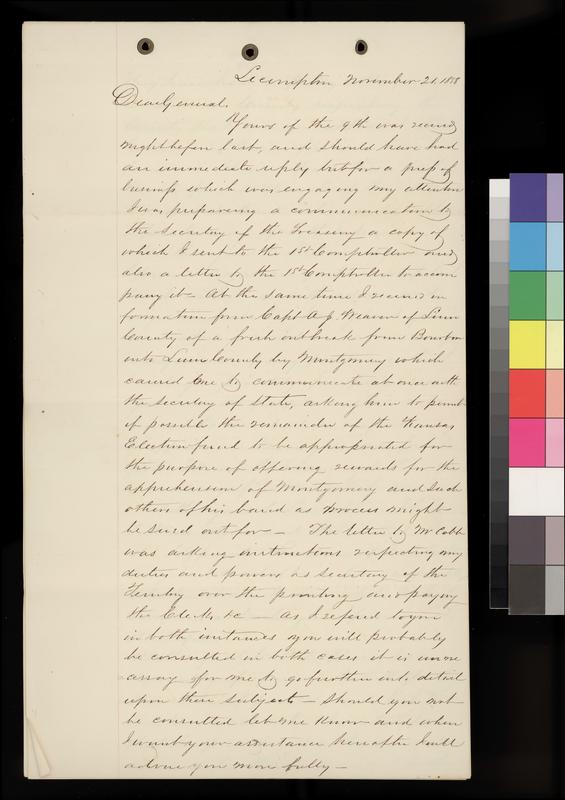 Lecompton November 21, 1858
Dear General,
Yours of the 9th was received
night before last, and should have had
an immediate reply but for a press of
business which was engaging my attention
I was preparing a communication to
the Secretary of the Treasury a copy of
which I sent to the 1st Comptroller and
also a letter to the 1st Comptroller to accom
pany it - At the same time I received in
formation from Capt A J Weaver of Linn
County of a fresh outbreak from Bourbon
into Linn County by Montgomery which
caused me to communicate at once with
the secretary of state, asking him to permit
if possible the remainder of the Kansas
Election fund to be appropriated for
the purpose of offering rewards for the
apprehension of Montgomery and such
others of his band as process might
be sued out for - The letter to Mr Cobb
was asking instructions respecting my
duties and powers as secretary of the
Territory over the printing and paying
the Clerks &c - As I refered to you
in both instances you will probably
be consulted in both cases it is unne
cessary for me to go further into detail
upon these subjects - Should you not
be consulted let me know - and when
I want your assistance hereafter I will
advise you more fully -